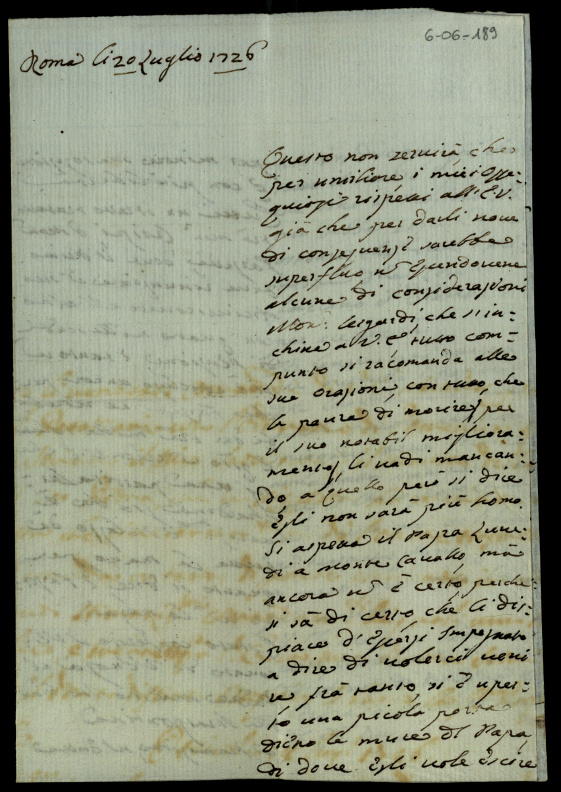 6-06-189
Roma li 20 Luglio 1726
Questo non servirà, che
per umiliare i miei osse-
quiosi rispetti all'E.V.
già che per darli nove
di conseguenza sarebbe
superfluo nō essendovene
alcune di considerazioni
Mon: che s'in-
china a V.E. tutto com-
punto si racomanda alle
sue orazioni, con tutto, che
la paura di morire, per
il suo notabil migliora-
mento, li vadi mancan-
do a quello però si dice
Egli non sarà più homo.
Si aspetta il Papa Lune-
dì a Monte Cavallo, mà
ancora nō è certo, perche
si sà di certo che li dis-
piace d'essersi impegnato
a dire di volerci veni
re frà tanto, si è aper-
to una picola porta
dietro le mura di Papa
di dove Egli vole escire